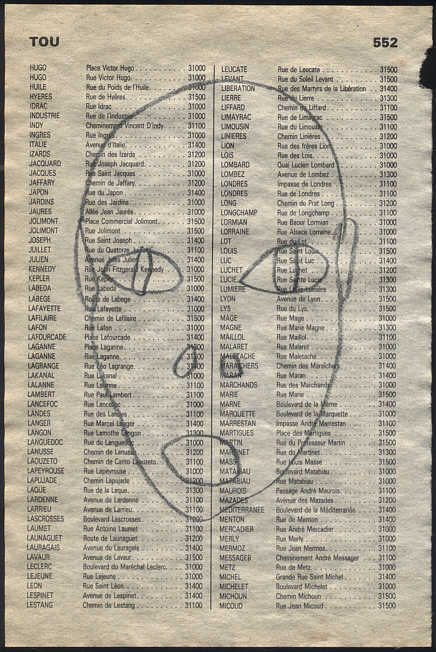 TOU 552
HUGO Place Victor Hugo 31000
HUGO Rue Victor Hugo 31000
HUILE Rue du Poids de l'Huile 31000
HYERES Rue de Hyères 31500
IDRAC Rue Idrac 31000
INDUSTRIE Rue de l'Industrie 31000
INDY Cheminement Vincent D'Indy 31100
INGRES Rue Ingres 31000
ITALIE Avenue d'Italie 31400
IZARDS Chemin des Izards 31200
JACQUARD Rue Joseph Jacquard 31200
JACQUES Rue Saint Jacques 31000
JAFFARY Chemin de Jaffary 31200
JAPON Rue du Japon 31400
JARDINS Rue des Jardins 31000
JAURES Allée Jean Jaurès 31000
JOLIMONT Place Commercial Jolimont 31500
JOLIMONT Rue Jolimont 31500
JOSEPH Rue Saint Joseph 31400
JUILLET Rue du Quatorze
JULIEN Avenue
KENNEDY Rue Fitzgerald Kennedy 31000
KEPLER
LABEDA Rue Labéda 31000
LABEGE Route de Labège 31400
LAFAYETTE Rue Lafayette 31000
LAFILAIRE Chemin de Lafilaire 31500
LAFON Rue Lafon 31000
LAFOURCADE Place Lafourcade 31400
LAGANNE Place Laganne 31300
LAGANNE Rue Laganne 31300
LAGRANGE Rue Léo Lagrange 31000
LAKANAL Rue Lakanal 31000
LALANNE Rue Lalanne 31100
LAMBERT Rue Paul Lambert 31100
LANCEFOC Rue Lancefoc 31000
LANDES Rue des Landes 31100
LANGER Rue Marcel Langer 31400
LANGON Rue Lamothe Langon 31300
LANGUEDOC Rue du Languedoc 31000
LANUSSE Chemin de Lanusse 31200
LAOUZETO Chemin de Canto Laouzeto 31100
LAPEYROUSE Rue Lapeyrouse 31000
LAPUJADE Chemin Lapujade
LAQUE Rue de la Laque 31300
LARDENNE Avenue de Lardenne 31100
LARRIEU Avenue de Larrieu 31100
LASCROSSES Boulevard Lascrosses 31000
LAUMET Rue Antoine Laumet 31100
LAUNAGUET Route de Launaguet 31200
LAURAGAIS Avenue du Lauragais 31400
LAVAUR Avenue de Lavaur 31500
LECLERC Boulevard du Maréchal Leclerc 31000
LEJEUNE Rue Lejeune 31000
LEON Rue Saint Léon 31400
LESPINET Avenue de Lespinet 31400
LESTANG Chemin de Lestang 31100
LEUCATE Rue de Leucate 31500
LEVANT Rue du Soleil Levant 31500
LIBERATION Rue des Martyrs de la Libération 31400
LIERRE Rue du Lierre 31300
LIFFARD Chemin du Liffard 31100
LIMAYRAC Rue de Limayrac 31500
LIMOUSIN Rue du Limousin 31100
LINIERES Chemin Linières 31200
LION Rue des frères Lion 31000
LOIS Rue des Lois 31000
LOMBARD Quai Lucien Lombard 31000
LOMBEZ Avenue de Lombez 31300
LONDRES Impasse de Londres 31100
LONDRES Rue de Londres 31100
LONG Chemin du Prat Long 31200
LONGCHAMP Rue de Longchamp 31100
LORMIAN Rue Baour Lormian 31000
LORRAINE Rue Alsace Lorraine 31000
LOT Rue du Lot
LOUIS Rue Saint Louis
LUC Rue Saint Luc
LUCHET
LUCIE Rue Sainte Lucie
LUMIERE
LYON Avenue de Lyon 31500
LYS Rue du Lys
MAGE Rue Mage 31000
MAGNE Rue Marie Magne 31300
MAILLOL Rue Maillol 31100
MALARET Rue Malaret
MALETACHE Rue Maletache 31400
MARAICHERS Chemin des Maraîchers 31400
MARAN Rue Maran 31400
MARCHANDS Rue des Marchands 31000
MARIE Rue Marie
MARNE Boulevard de la Marne 31400
MARQUETTE Boulevard de la Marquette 31000
MARRESTAN Impasse André Marrestan 31400
MARTIGUES Place des Martigues 31500
MARTIN Rue du Professeur Martin 31500
MARTINET Rue du Martinet 31300
MASSE Rue Louis Masse 31500
MATABIAU Boulevard Matabiau 31000
MATABIAU Rue Matabiau 31000
MAUROIS Passage André Maurois 31100
MAZADES Avenue des Mazades 31200
MEDITERRANEE Boulevard de la Méditerranée 31400
MENTON Rue de Menton 31400
MERCADIER Rue André Mercadier 31000
MERLY Rue Merly 31000
MERMOZ Rue Jean Mermoz 31100
MESSAGER Cheminement André Messager 31100
METZ Rue de Metz 31000
MICHEL Grande Rue Saint Michel 31400
MICHELET Boulevard Michelet 31000
MICHOUN Chemin Michoun 31500
MICOUD Rue Jean Micoud 31500